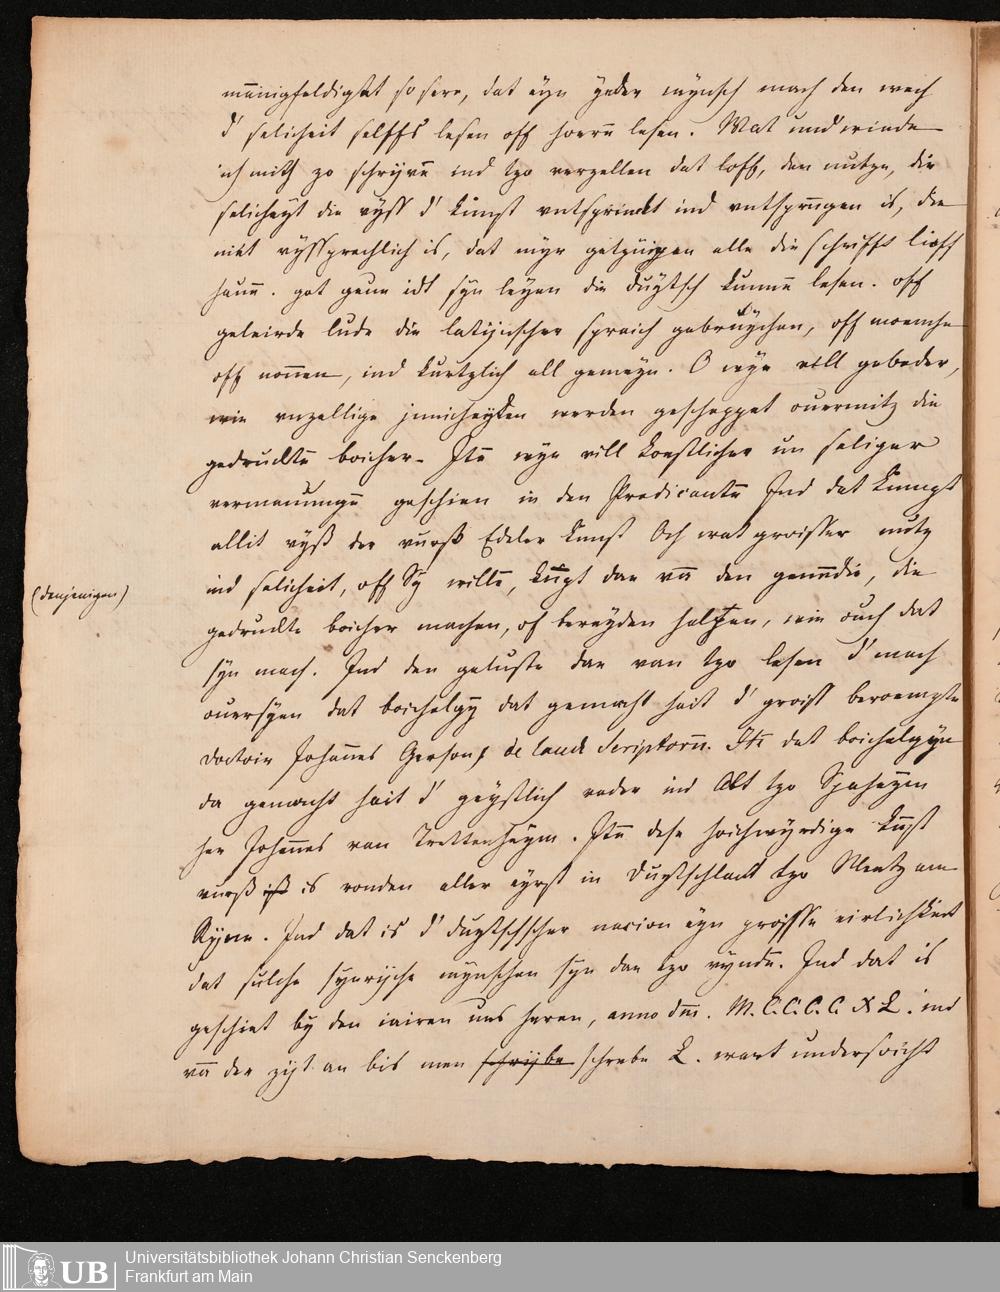 mānigfeldigkt so sere, dat eyn yeder mynsch mach den wech
d' selicheit selffs lesen off hoern lesen. Wat und winde
ich mich zo schryvē ind tzo verzellen dat loff, den nutzn, die
selicheyt die vyss d' kunst untsprinckt ind untsprūgen is, die
niet vyssprechlich is, dat myr getzuigen alle die schrifft lieff
hauē. got geue idt syn leyen die duytsch kunnē lesen. off
geleirde lude die latijnscher spraich gebruychen, off moenche
off nonnen, ind kurtzlich all gemeyn. O wye vill gebeder,
wie unzellige jnnicheyden werden geschoppet ouermitz die
gedrucktē boicher. Itē wye vill koestlicher un seliger
vermanungē geschien in den Predicantē Ind dat kumpt
allit vyß der vurß Edeler kunst Och wat groisser nutz
ind selicheit, off Sy willē, kūpt dar vā den genēdie, die
(denjenigen)
gedruckte boicher machen, of bereyden helffen, wie ouch dat
syn mach. Ind den geluste dar van tzo lesen d' mach
ouersyen dat boichelgÿ dat gemacht hait d' groiss beroempte
doctoir Johānes Gerson, de laude Scriptorū. Itē dat boichelgyn
da gemacht hait d' geystlich vader ind Abt tzo Spaheym
her Johānes van Trittenheym. Itē dese hoichwyrdige kūst
vurß ist is vonden aller eyrst in Duytschlant tzo Mentz am
Rijne. Ind dat is d' duytschscher nacion eyn groisse eirlichkeit
dat sulche synrijche mynschen syn dae tzo vyndē. Ind dat is
geschiet by den iairen uns heren, anno dm̄. M.C.C.C.C XL. ind
vā der zijt an bis men schrijbe schreve L. wart undersoicht
Universitätsbibliothek Johann Christian Senckenberg
Frankfurt am Main
UB